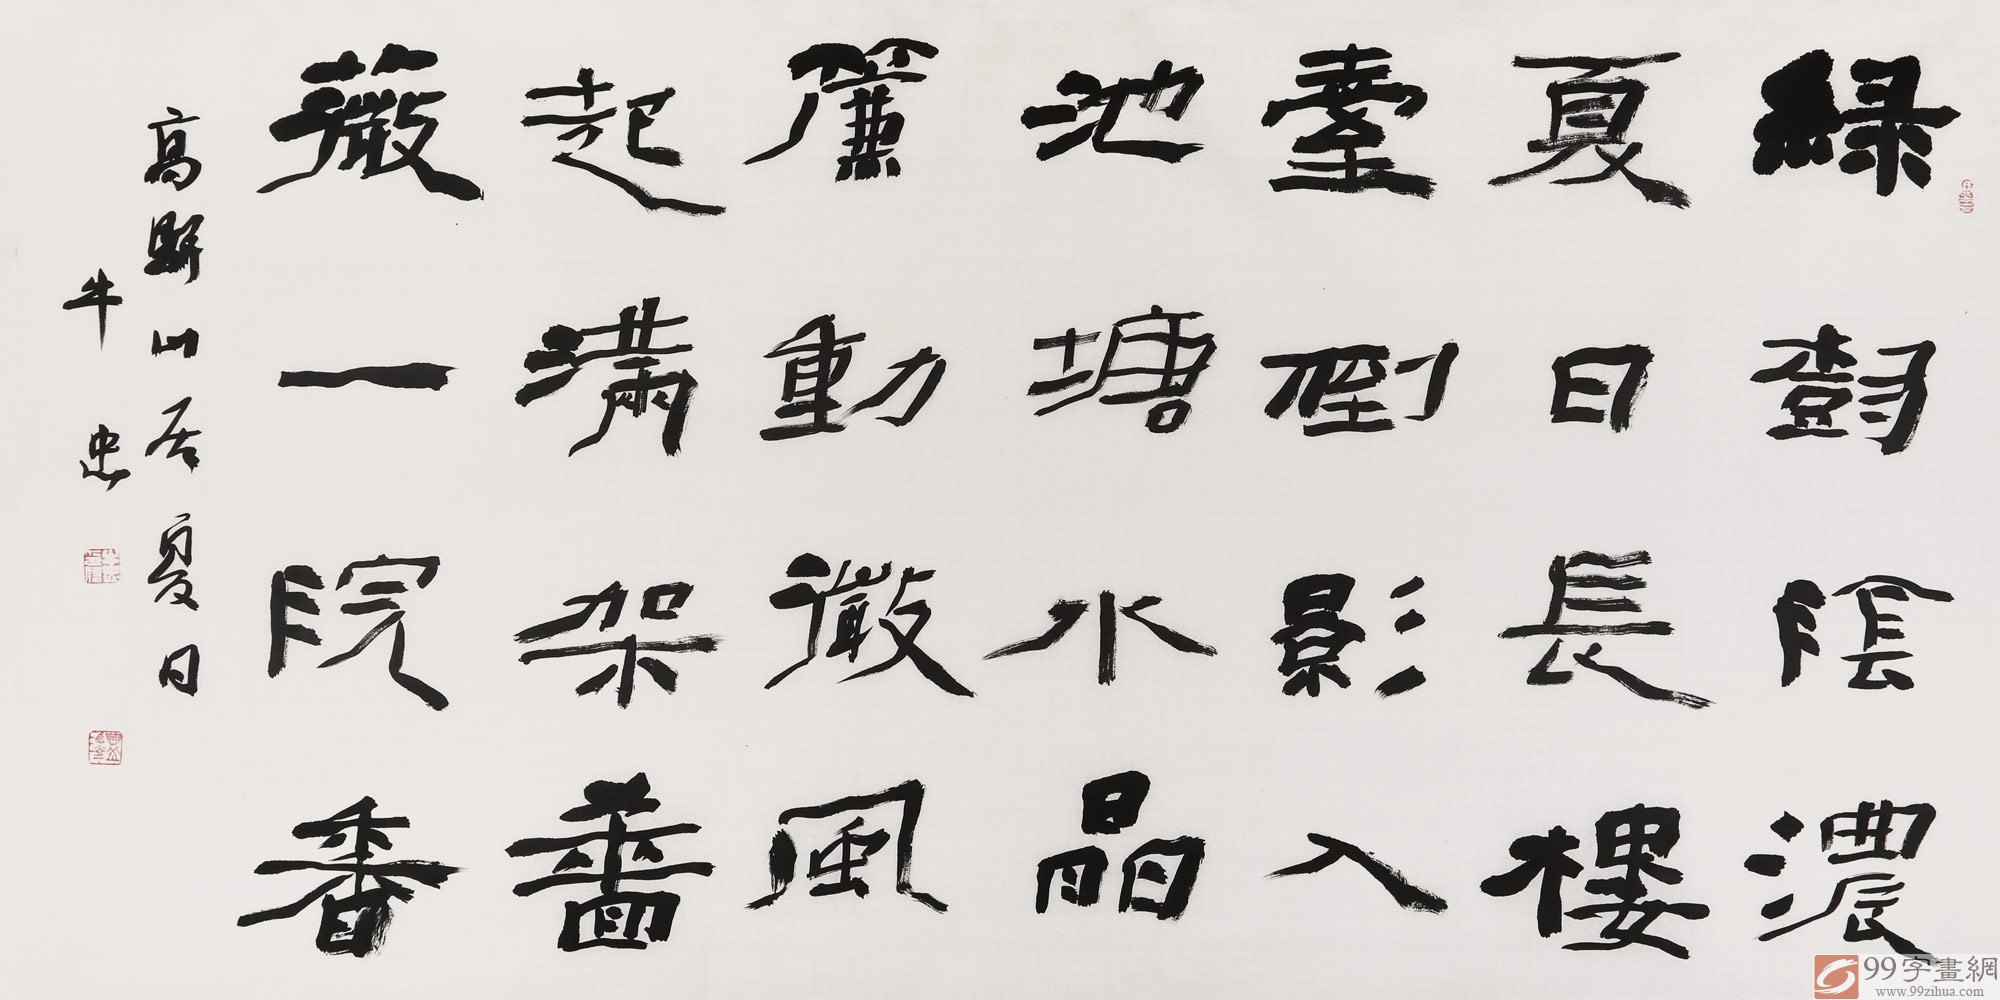 緑樹陰濃
夏日長樓
臺倒影入
池塘水晶
簾動微風
起滿架薔
薇一院香
高駢山居夏日
牛忠
99字畫網
www.99zihua.com